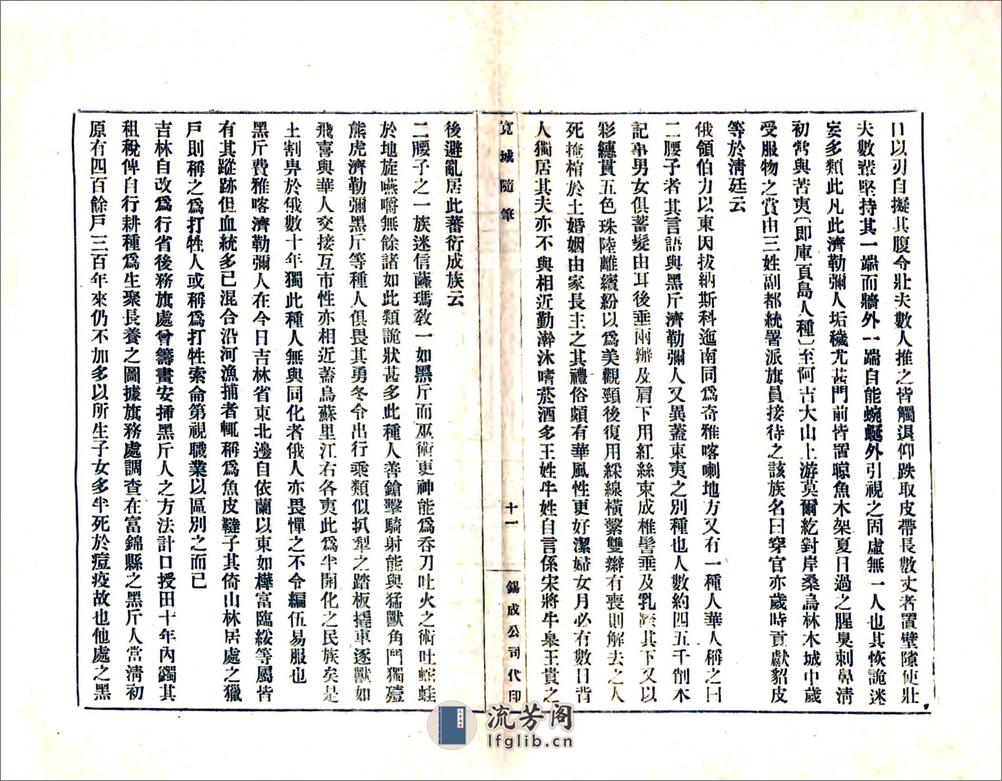 口以刃自擬其腹令壯夫數人推之皆觸退仰跌取皮帶長數丈者置壁隙使壯
夫數輩堅持其一端而牆外一端自能蜿蜒外引視之固虛無一人也其恢詭迷
妄多類此凡此濟勒彌人垢穢尤甚門前皆置晾魚木架夏日過之腥臭刺鼻清
初當與苦夷〔即庫頁島人種〕至阿吉大山上游莫爾紇對岸桑烏林木城中歲
受服物之賞由三姓副都統署派旗員接待之該族名曰穿官亦歲時貢獻貂皮
等於清廷云
俄領伯力以東因拔納斯科迤南同爲奇雅喀喇地方又有一種人華人稱之曰
二腰子者其言語與黑斤濟勒彌人又異蓋東夷之別種也人數約四五千削木
記事男女俱蓄髮由耳後垂兩辮及肩下用紅絲束成椎髻垂及乳際其下又以
彩繐貫五色珠陸離繽紛以爲美觀頸後復用綵線橫繫雙辮有喪則解去之人
死掩棺於土婚姻由家長主之其禮俗頗有華風性更好潔婦女月必有數日背
人獨居其夫亦不與相近勤澣沐嗜菸酒多王姓牛姓自言係宋將牛臯王貴之
寬城隨筆
十一
錫成公司代印
後避亂居此蕃衍成族云
二腰子之一族迷信薩瑪教一如黑斤而巫術更神能爲吞刀吐火之術吐蛇蛙
於地旋嚥嚼無餘諸如此類詭狀甚多此種人善鎗擊騎射能與猛獸角鬥獨殪
熊虎濟勒彌黑斤等種人俱畏其勇冬令出行乘類似扒犁之踏板撬東逐獸如
飛喜與華人交接互市性亦相近蓋烏蘇里江右各夷此爲半開化之民族矣是
土割畀於俄數十年獨此種人無與同化者俄人亦畏憚之不令編伍易服也
黑斤費雅喀濟勒彌人在今日吉林省東北邊自依蘭以東如樺富臨綏等屬皆
有其蹤跡但血統多已混合沿河漁捕者輒稱爲魚皮韃子其倚山林居處之獵
戶則稱之爲打牲人或稱爲打牲索倫第視職業以區別之而已
吉林自改爲行省後務旗處曾籌畫安揷黑斤人之方法計口授田十年內蠲其
租稅俾自行耕種爲生聚長養之圖據旗務處調查在富錦縣之黑斤人當淸初
原有四百餘戶三百年來仍不加多以所生子女多半死於痘疫故也他處之黑
流芳阁
lfglib.cn